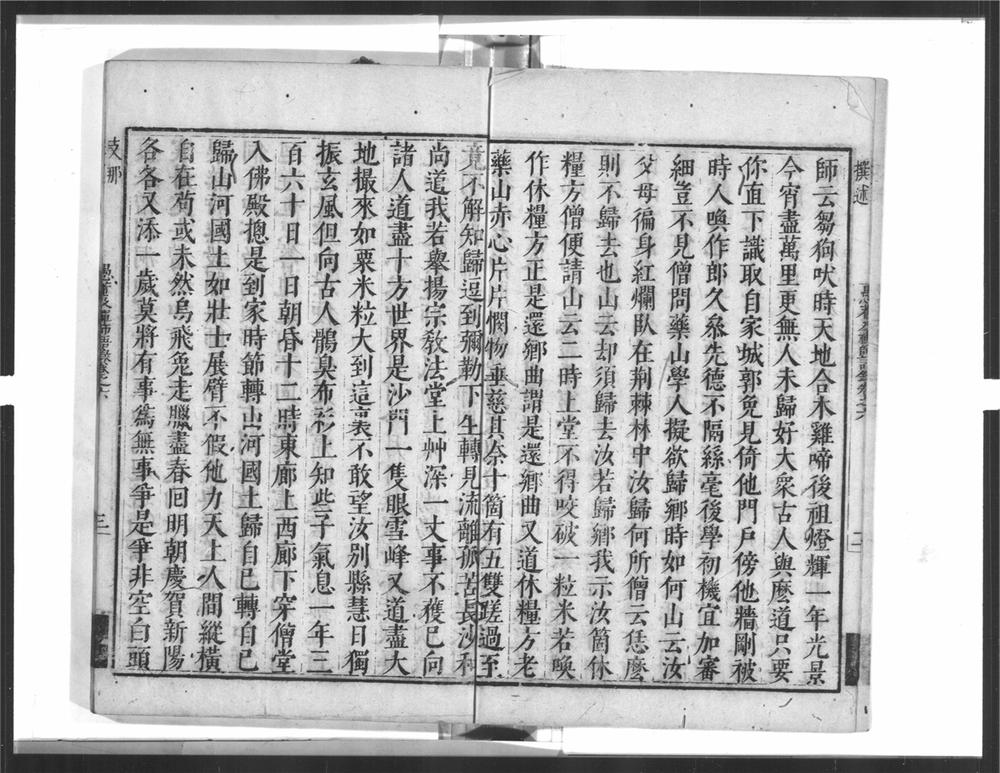 撰述
師云芻狗吠時天地合木雞啼後祖燈輝一年光景
今宵盡萬里更無人未歸好大衆古人與麼道只要
你直下識取自家城郭免見倚他門戶傍他牆剛被
時人喚作郎久叅先德不隔絲毫後學初機宜加審
細豈不見僧問藥山學人擬欲歸鄉時如何山云汝
父母徧身紅爛臥在荆棘林中汝歸何所僧云恁麼
則不歸去也山云却須歸去汝若歸鄉我示汝箇休
糧方僧便請山云二時上堂不得咬破一粒米若喚
作休糧方正是還鄉曲謂是還鄉曲又道休糧方老
藥山赤心片片憫物垂慈其余十箇有五雙蹉過至
竟不解知歸逗到彌勒下生轉見流離孤苦長沙和
尚道我若舉揚宗敎法堂上艸深一丈事不獲已向
諸人道盡十方世界是沙門一隻眼雪峰又道盡大
地撮來如粟米粒大到這裏不敢望汝別縣慧日獨
振玄風但向古人鶻臭布衫上知些子氣息一年三
百六十日一日朝昏十二時東廊上西廊下穿僧堂
入佛殿摠是到家時節轉山河國土歸自己轉自己
歸山河國土如壯士展臂不假他力天上人間縱橫
自在苟或未然烏飛兔走臘盡春回明朝慶賀新陽
各各又添一歲莫將有事爲無事爭是爭非空白頭
支那
三